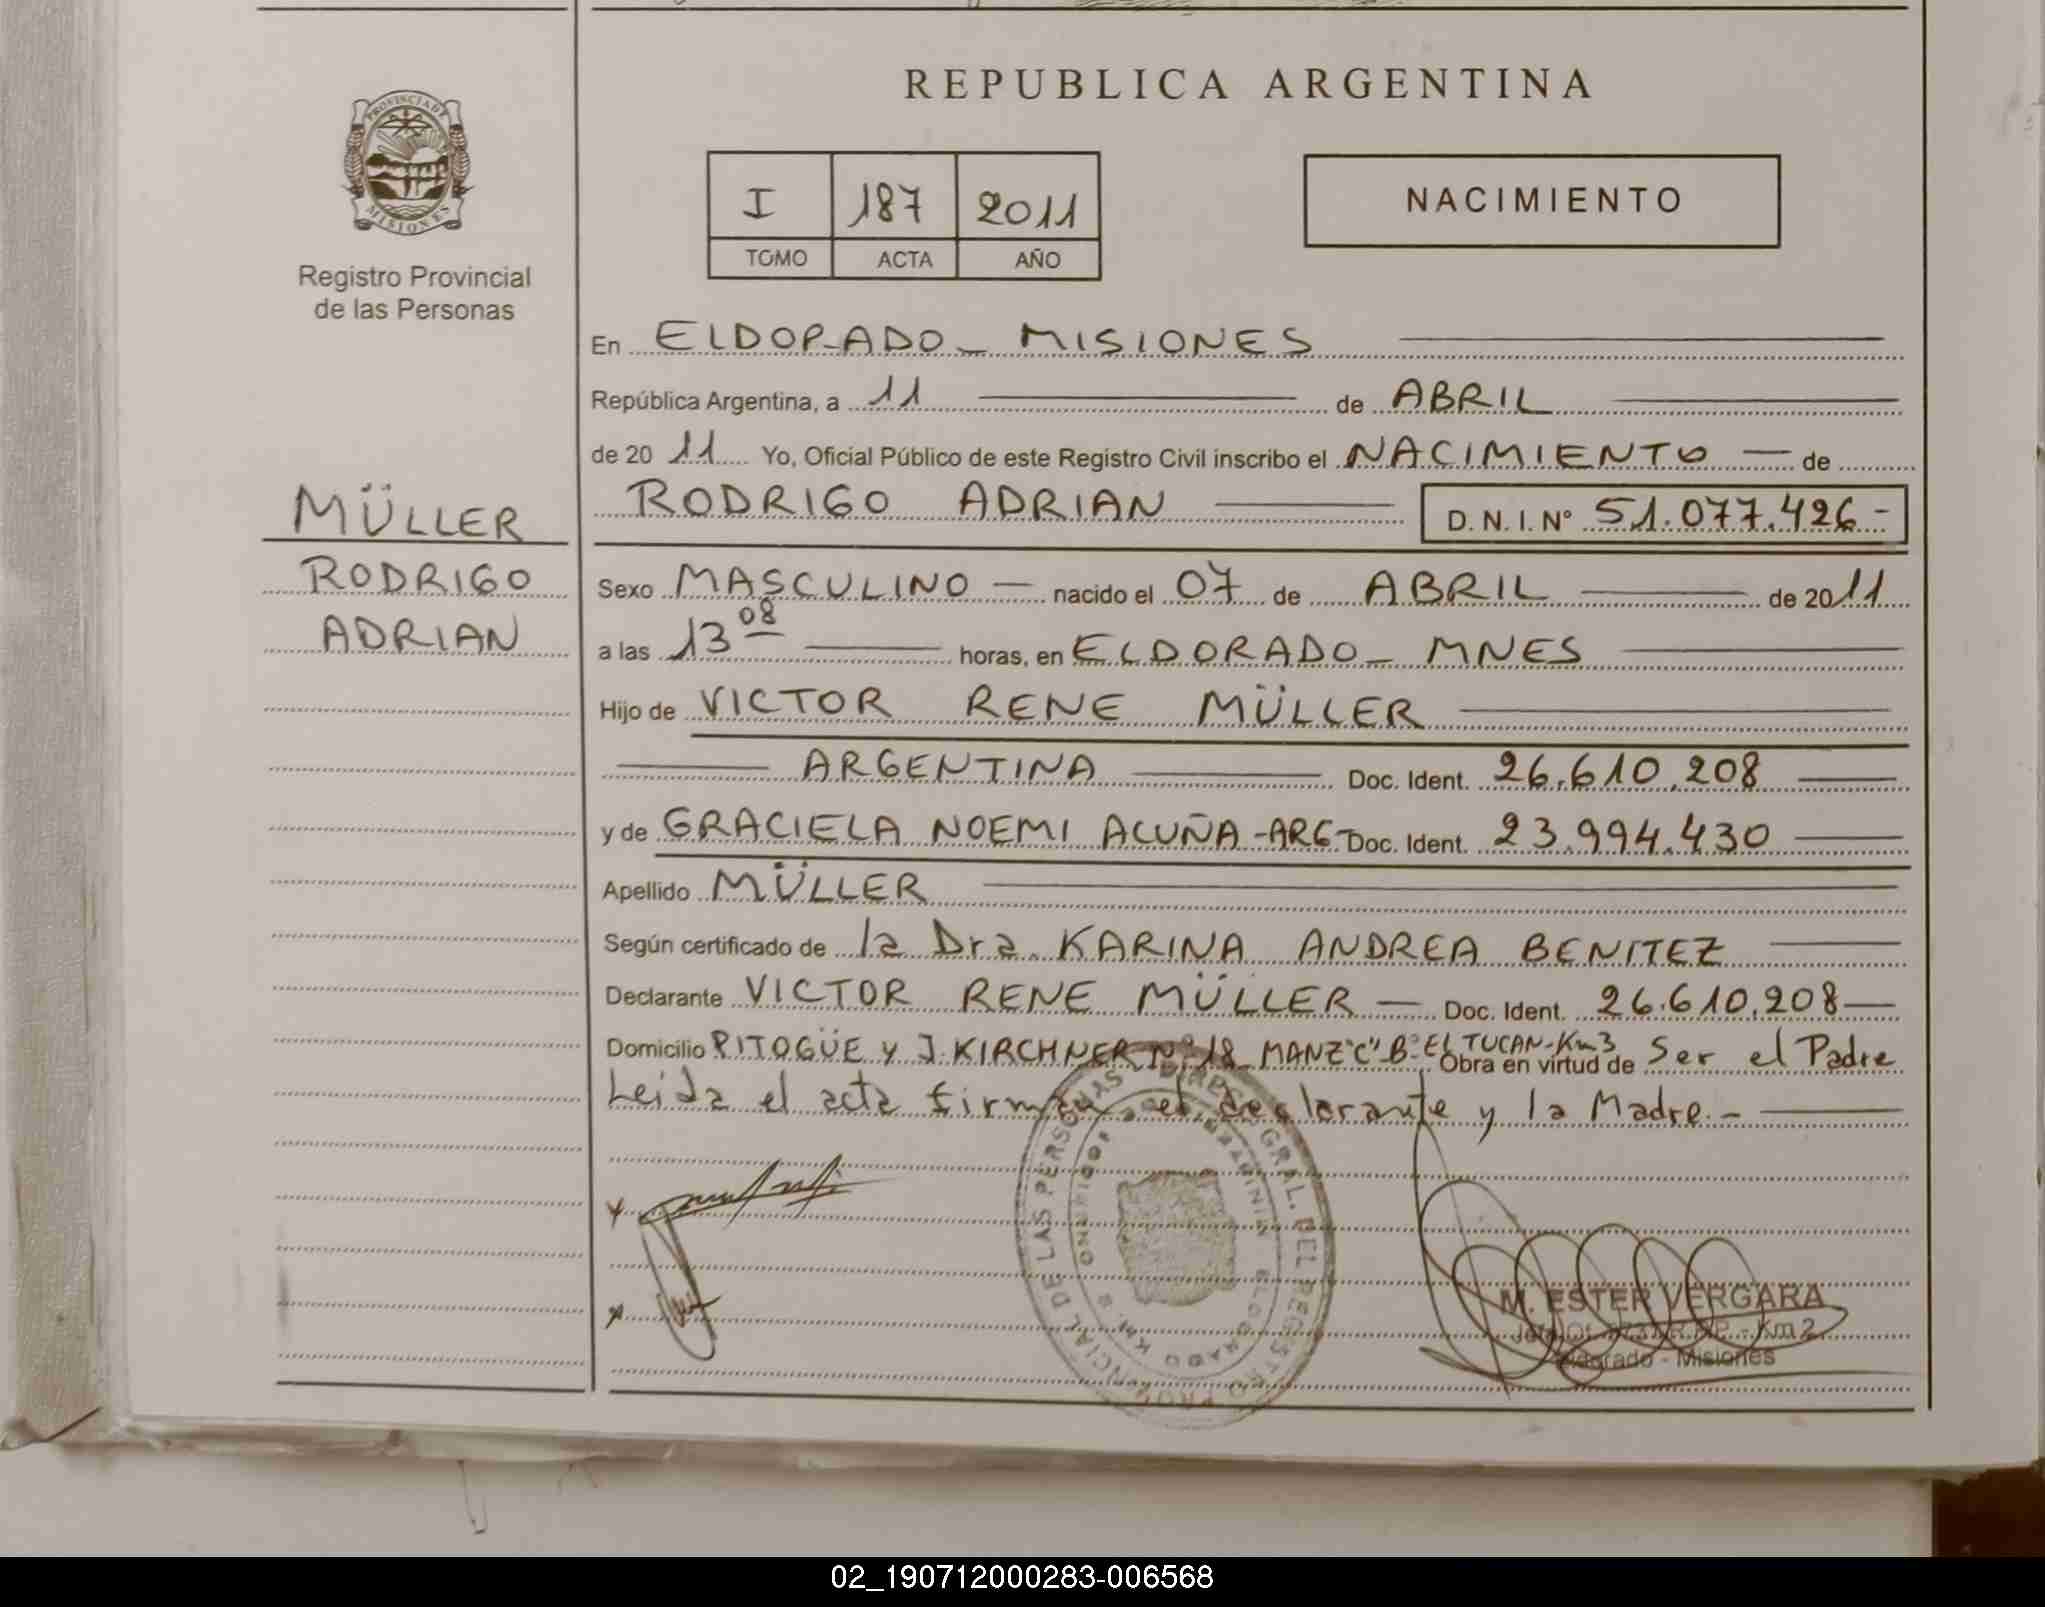 REPUBLICA ARGENTINA
PROVINCIA DE
MISIONES
Registro Provincial
de las Personas
I 187 2011
TOMO ACTA AÑO
NACIMIENTO
En ELDORADO - MISIONES
República Argentina, a 11 de ABRIL
de 20 11 Yo, Oficial Público de este Registro Civil inscribo el NACIMIENTO de
MÜLLER
RODRIGO
ADRIAN
RODRIGO ADRIAN D. N. I. N° 51.077.426-
Sexo MASCULINO nacido el 07 de ABRIL de 2011
a las 13 08 horas, en ELDORADO - MNES
Hijo de VICTOR RENE MÜLLER
ARGENTINA Doc. Ident. 26.610.208
y de GRACIELA NOEMI ACUÑA-ARG- Doc. Ident. 23.994.430
Apellido MÜLLER
Según certificado de la Dra. KARINA ANDREA BENITEZ
Declarante VICTOR RENE MÜLLER Doc. Ident. 26.610.208
Domicilio PITOGÜE y J. KIRCHNER N° 18 MANZ "C" B° EL TUCAN-Km3 Obra en virtud de Ser el Padre
Leida el acta firman el declarante y la Madre.-
DIREC. GRAL. DEL REGISTRO PROVINCIAL DE LAS PERSONAS
ELDORADO KM. 2
M. ESTER VERGARA
Km 2
Eldorado - Misiones
02_190712000283-006568